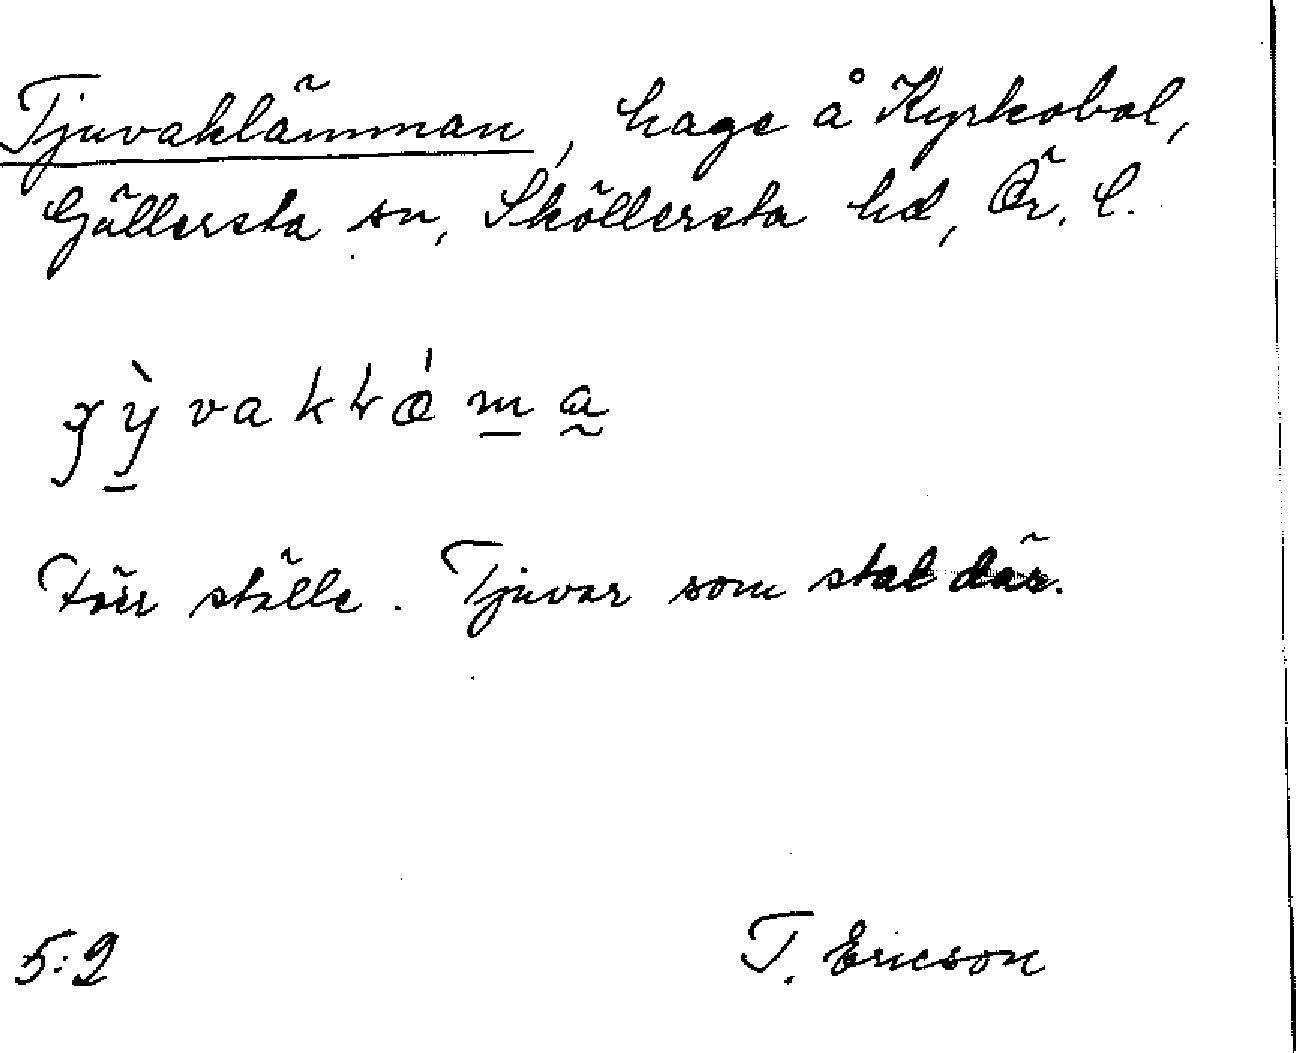 Tjuvaklämman, hage å Kyrkobol,
Gällersta sn, Sköllersta hd, Ör. l.
Törr ställe. Tjuvar som stal där.
5:2 T. Ericson